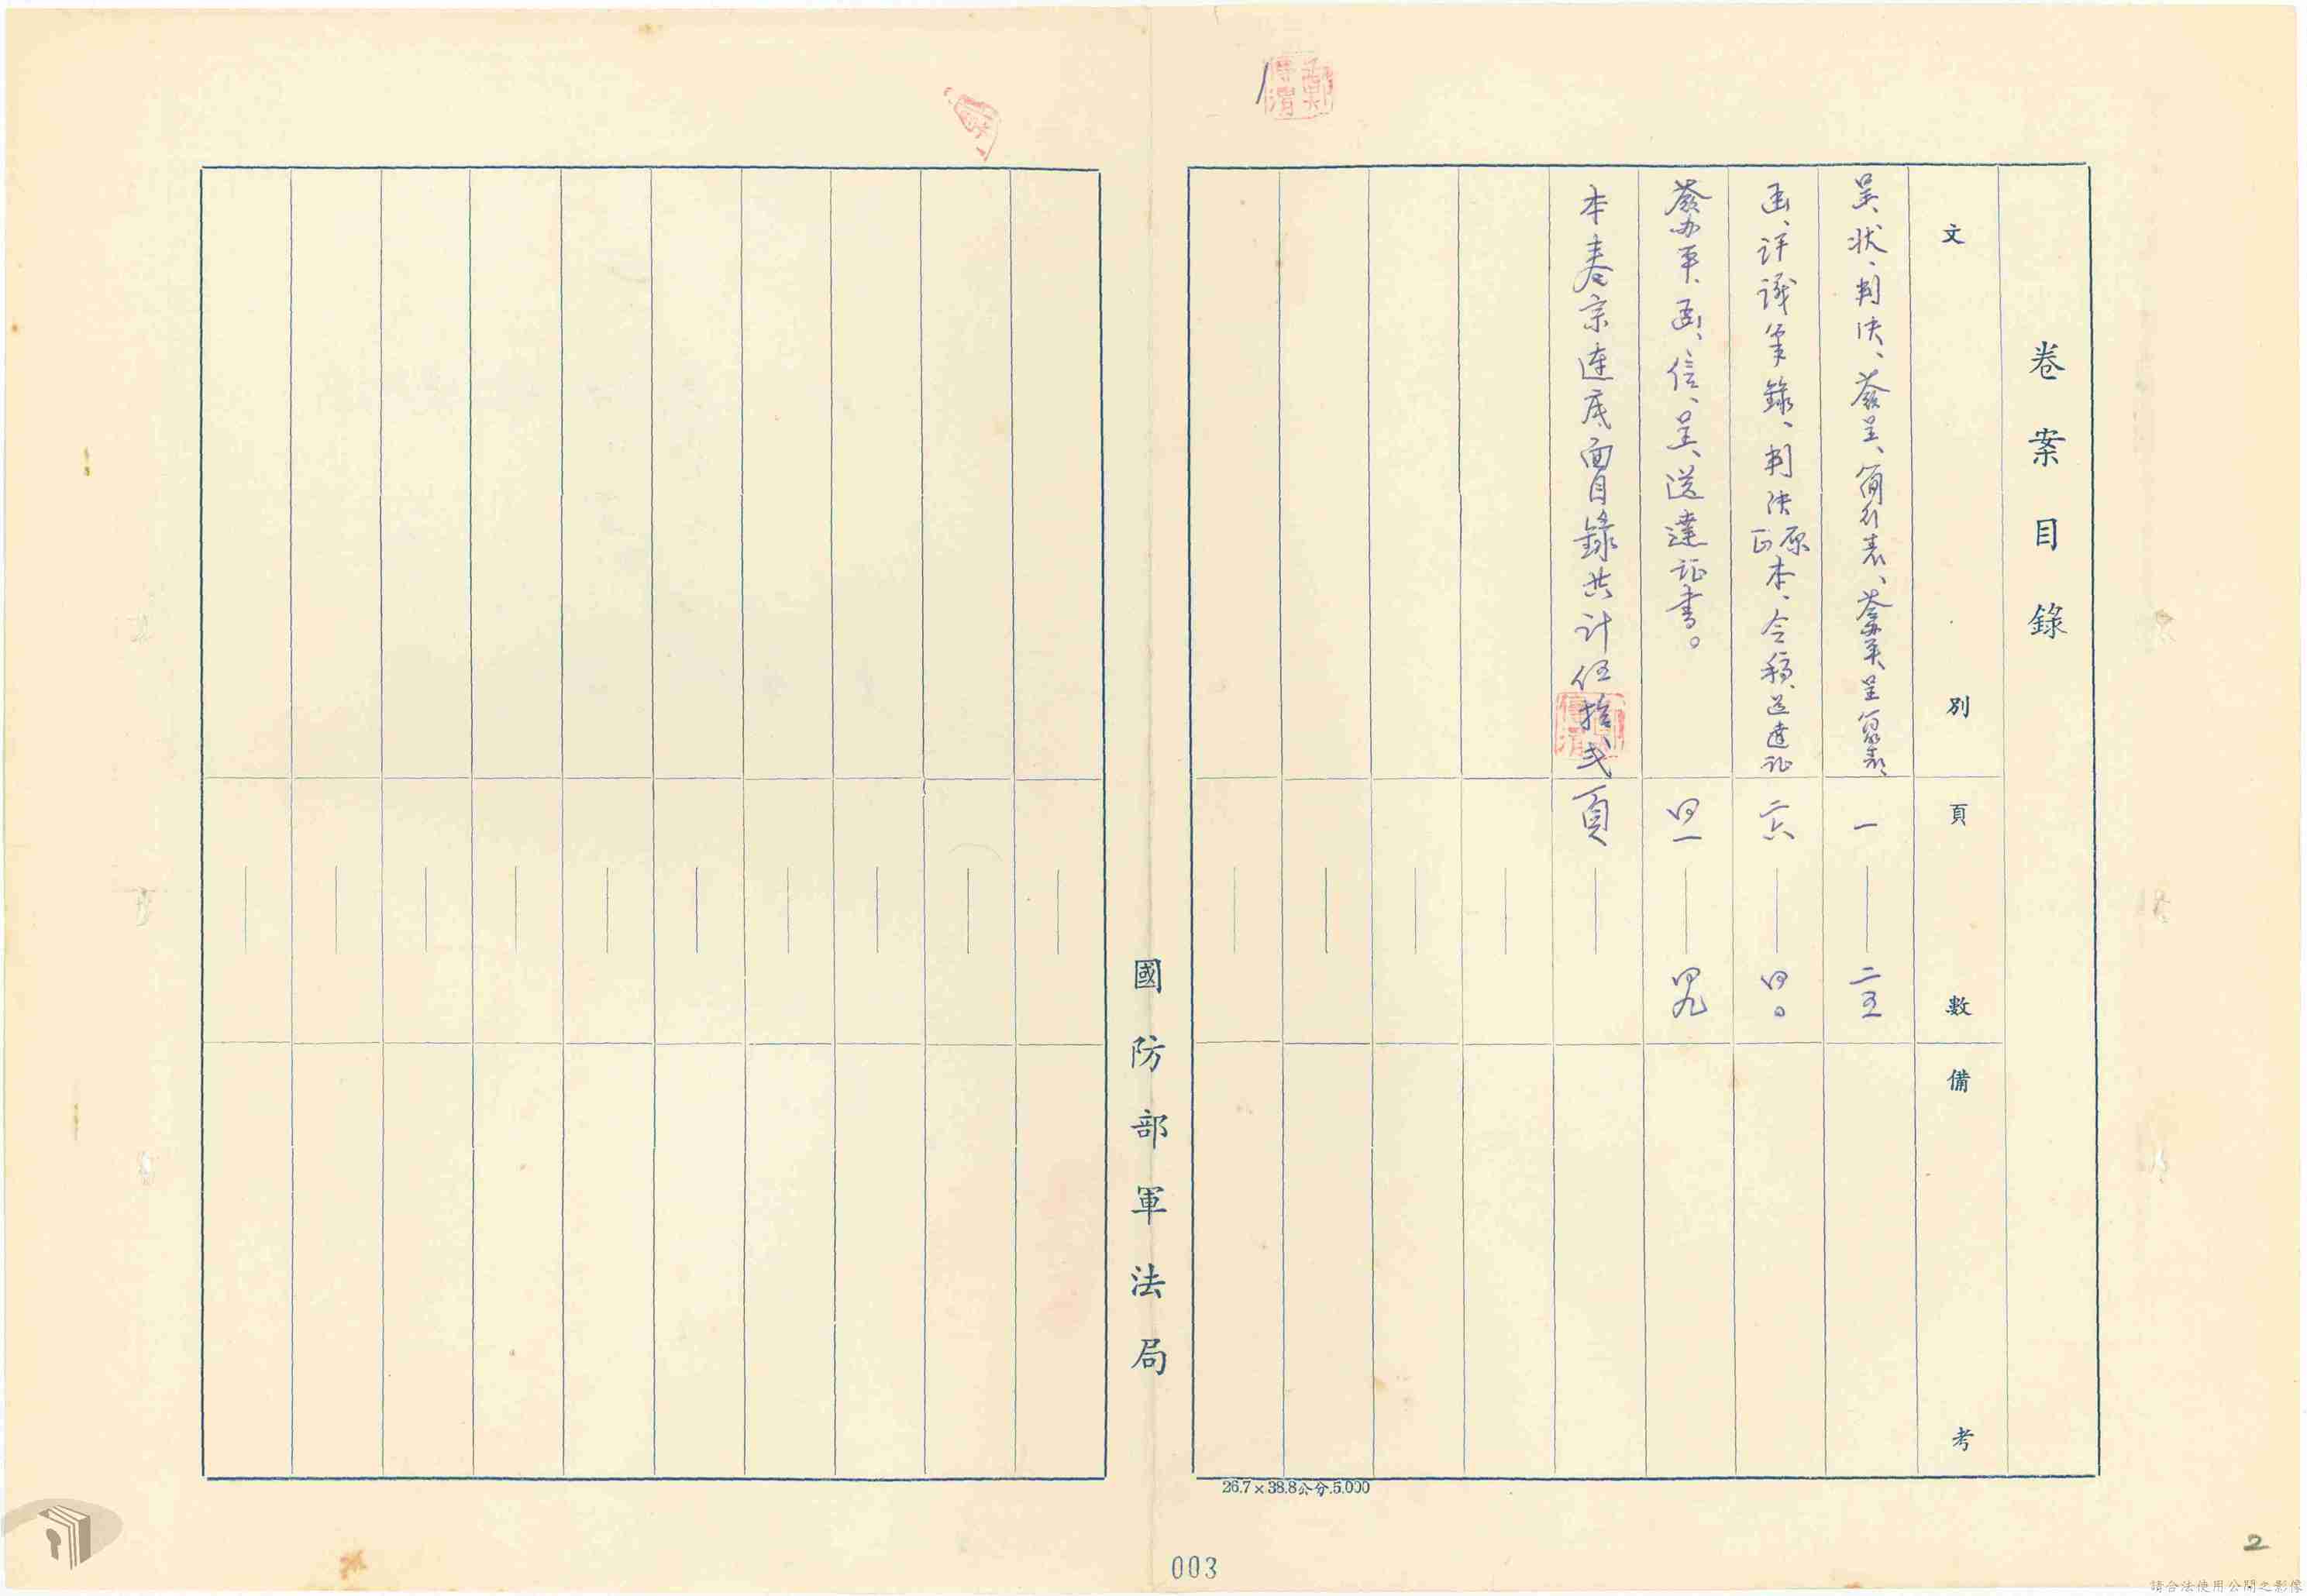 卷案目錄
文別
頁數
備考
呈、狀、判決、簽呈、簡引表、簽办單、呈、簡表、
一——二五
函、评議筆錄、判決原正本、令稿、送達证
二六——四〇
簽办单、函、信、呈、送達证書。
四一——四九
本卷宗連底面目錄共計伍拾弍頁
國防部軍法局
26.7×38.8公分.5.000
003
2
請合法使用公開之影像